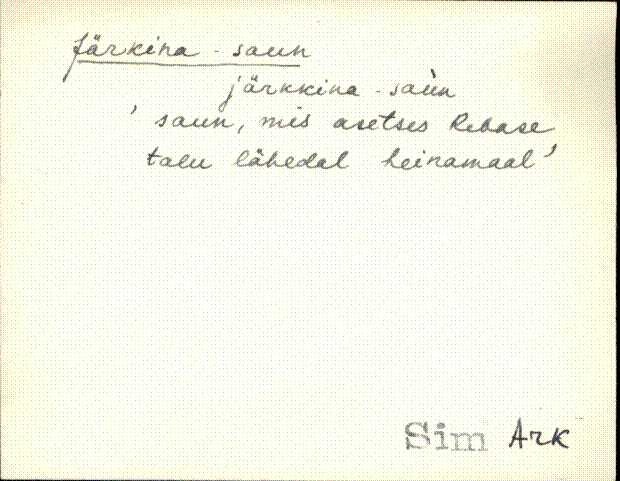 Järkina - saun
järkkina - saùn
' saun, mis asetses Rebase
talu lähedal heinamaal'
Sim Ark